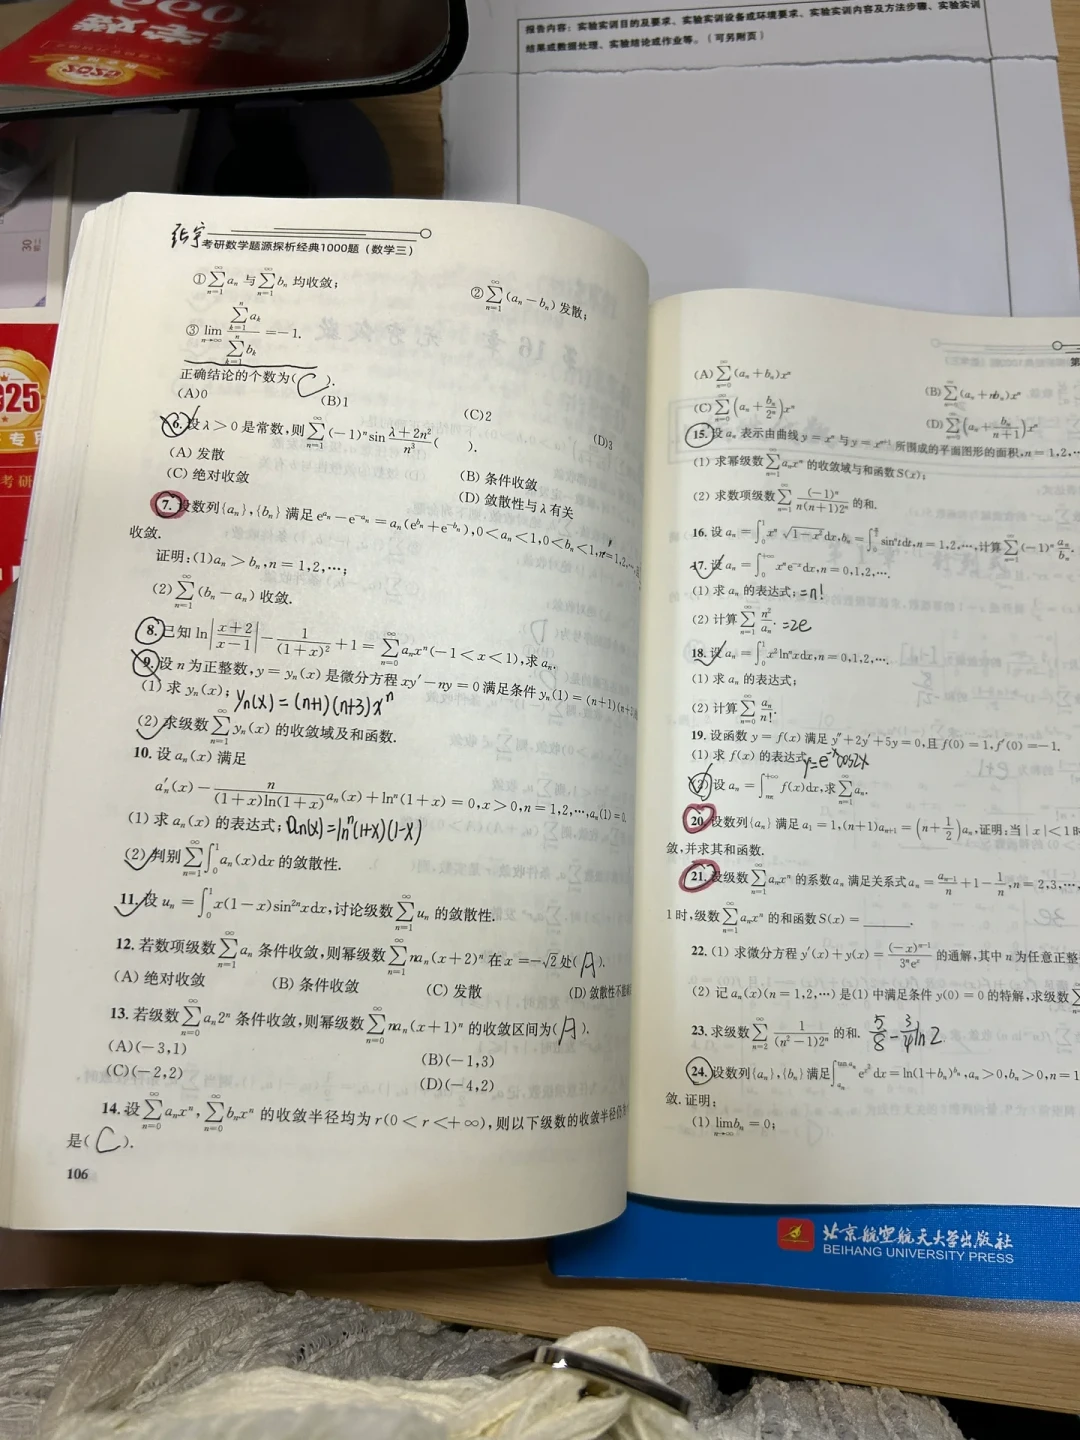 报告内容:实验实训目的及要求、实验实训设备或环境要求、实验实训内容及方法步骤、实验实训
结果或数据处理、实验结论或作业等。(可另附页)
张宇 考研数学题源探析经典1000题(数学三)
①∑_{n=1}^{∞}a_n 与 ∑_{n=1}^{∞}b_n 均收敛; ②∑_{n=1}^{∞}(a_n-b_n)发散;
③lim_{n→∞} (∑_{k=1}^{n}a_k)/(∑_{k=1}^{n}b_k) =-1.
正确结论的个数为( C ).
(A)0 (B)1 (C)2 (D)3
6.设λ>0是常数,则∑_{n=1}^{∞}(-1)^n sin (λ+2n²)/n³ ( ).
(A)发散 (B)条件收敛
(C)绝对收敛 (D)敛散性与λ有关
7.设数列{a_n},{b_n}满足e^{a_n}-e^{-a_n}=a_n(e^{b_n}+e^{-b_n}),0<a_n<1,0<b_n<1,n=1,2,…,
收敛.
证明:(1)a_n>b_n,n=1,2,…;
(2)∑_{n=1}^{∞}(b_n-a_n)收敛.
8.已知ln|(x+2)/(x-1)|-1/(1+x)²+1=∑_{n=0}^{∞}a_nx^n(-1<x<1),求a_n.
9.设n为正整数,y=y_n(x)是微分方程xy′-ny=0满足条件y_n(1)=(n+1)(n+
(1)求y_n(x); y_n(x)=(n+1)(n+3)x^n
(2)求级数∑_{n=1}^{∞}y_n(x)的收敛域及和函数.
10.设a_n(x)满足
a′_n(x)-n/((1+x)ln(1+x)) a_n(x)+ln^n(1+x)=0,x>0,n=1,2,…,a_n(1)=0.
(1)求a_n(x)的表达式; a_n(x)=ln^n(1+x)(1-x)
(2)判别∑_{n=1}^{∞}∫_0^1 a_n(x)dx的敛散性.
11.设u_n=∫_0^1 x(1-x)sin^{2n}xdx,讨论级数∑_{n=1}^{∞}u_n的敛散性.
12.若数项级数∑_{n=1}^{∞}a_n条件收敛,则幂级数∑_{n=1}^{∞}na_n(x+2)^n在x=-√2处( A ).
(A)绝对收敛 (B)条件收敛 (C)发散 (D)敛散性不
13.若级数∑_{n=0}^{∞}a_n2^n条件收敛,则幂级数∑_{n=0}^{∞}na_n(x+1)^n的收敛区间为( A ).
(A)(-3,1) (B)(-1,3)
(C)(-2,2) (D)(-4,2)
14.设∑_{n=0}^{∞}a_nx^n,∑_{n=0}^{∞}b_nx^n的收敛半径均为r(0<r<+∞),则以下级数的收敛半径仍
是( C ).
106
第
(A)∑_{n=0}^{∞}(a_n+b_n)x^n (B)∑_{n=0}^{∞}(a_n+nb_n)x^n
(C)∑_{n=0}^{∞}(a_n+b_n/2^n)x^n (D)∑_{n=0}^{∞}(a_n+b_n/(n+1))x^n
15.设a_n表示由曲线y=x^n与y=x^{n+1}所围成的平面图形的面积,n=1,2,…
(1)求幂级数∑_{n=1}^{∞}a_nx^n的收敛域与和函数S(x);
(2)求数项级数∑_{n=1}^{∞}(-1)^n/(n(n+1)2^n)的和.
16.设a_n=∫_0^1 x^n√(1-x²)dx,b_n=∫_0^{π/2}sin^n tdt,n=1,2,…,计算∑_{n=1}^{∞}(-1)^n a_n/b_n.
17.设a_n=∫_0^{+∞}x^ne^{-x}dx,n=0,1,2,….
(1)求a_n的表达式; =n!
(2)计算∑_{n=1}^{∞}n²/a_n. =2e
18.设a_n=∫_0^1 x²ln^n xdx,n=0,1,2,….
(1)求a_n的表达式;
(2)计算∑_{n=0}^{∞}a_n/n!.
19.设函数y=f(x)满足y″+2y′+5y=0,且f(0)=1,f′(0)=-1.
(1)求f(x)的表达式; y=e^{-x}cos2x
(2)设a_n=∫_{nπ}^{+∞}f(x)dx,求∑_{n=1}^{∞}a_n.
20.设数列{a_n}满足a_1=1,(n+1)a_{n+1}=(n+1/2)a_n,证明:当|x|<1时
敛,并求其和函数.
21.设级数∑_{n=1}^{∞}a_nx^n的系数a_n满足关系式a_n=a_{n-1}/n+1-1/n,n=2,3,…,
1时,级数∑_{n=1}^{∞}a_nx^n的和函数S(x)=______.
22.(1)求微分方程y′(x)+y(x)=(-x)^{n-1}/(3^ne^x)的通解,其中n为任意正整
(2)记a_n(x)(n=1,2,…)是(1)中满足条件y(0)=0的特解,求级数∑
23.求级数∑_{n=2}^{∞}1/((n²-1)2^n)的和. 5/8-3/4ln2
24.设数列{a_n},{b_n}满足∫_{a_n}^{tan a_n}e^{x²}dx=ln(1+b_n)^{b_n},a_n>0,b_n>0,n=1
敛.证明:
(1)lim_{n→∞}b_n=0;
北京航空航天大学出版社
BEIHANG UNIVERSITY PRESS